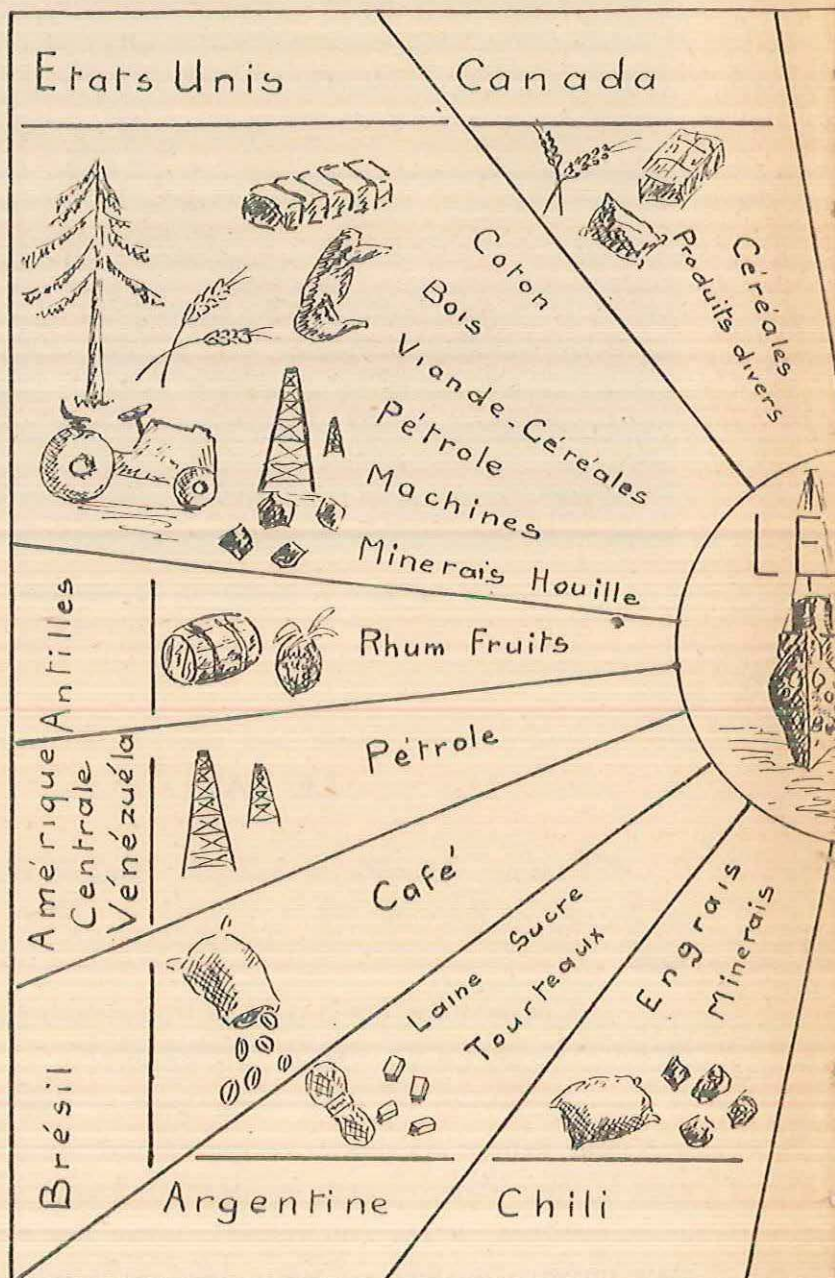 Etats Unis
Coton
Bois
Viande-Céréales
Pétrole
Machines
Minerais Houille
Canada
Céréales
Produits divers
LE
Antilles
Rhum Fruits
Amérique
Centrale
Vénézuéla
Pétrole
Brésil
Café
Argentine
Laine Sucre
Tourteaux
Chili
Engrais
Minerais